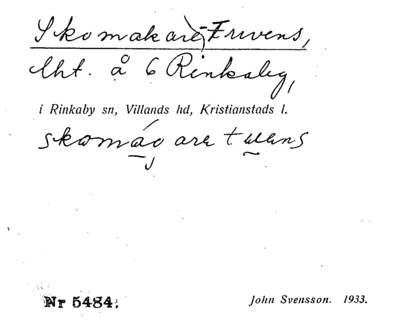 Skomakare-Frivens,
lht. å 6 Rinkaby,
i Rinkaby sn, Villands hd, Kristianstads l.
Nr 5484.
John Svensson. 1933.